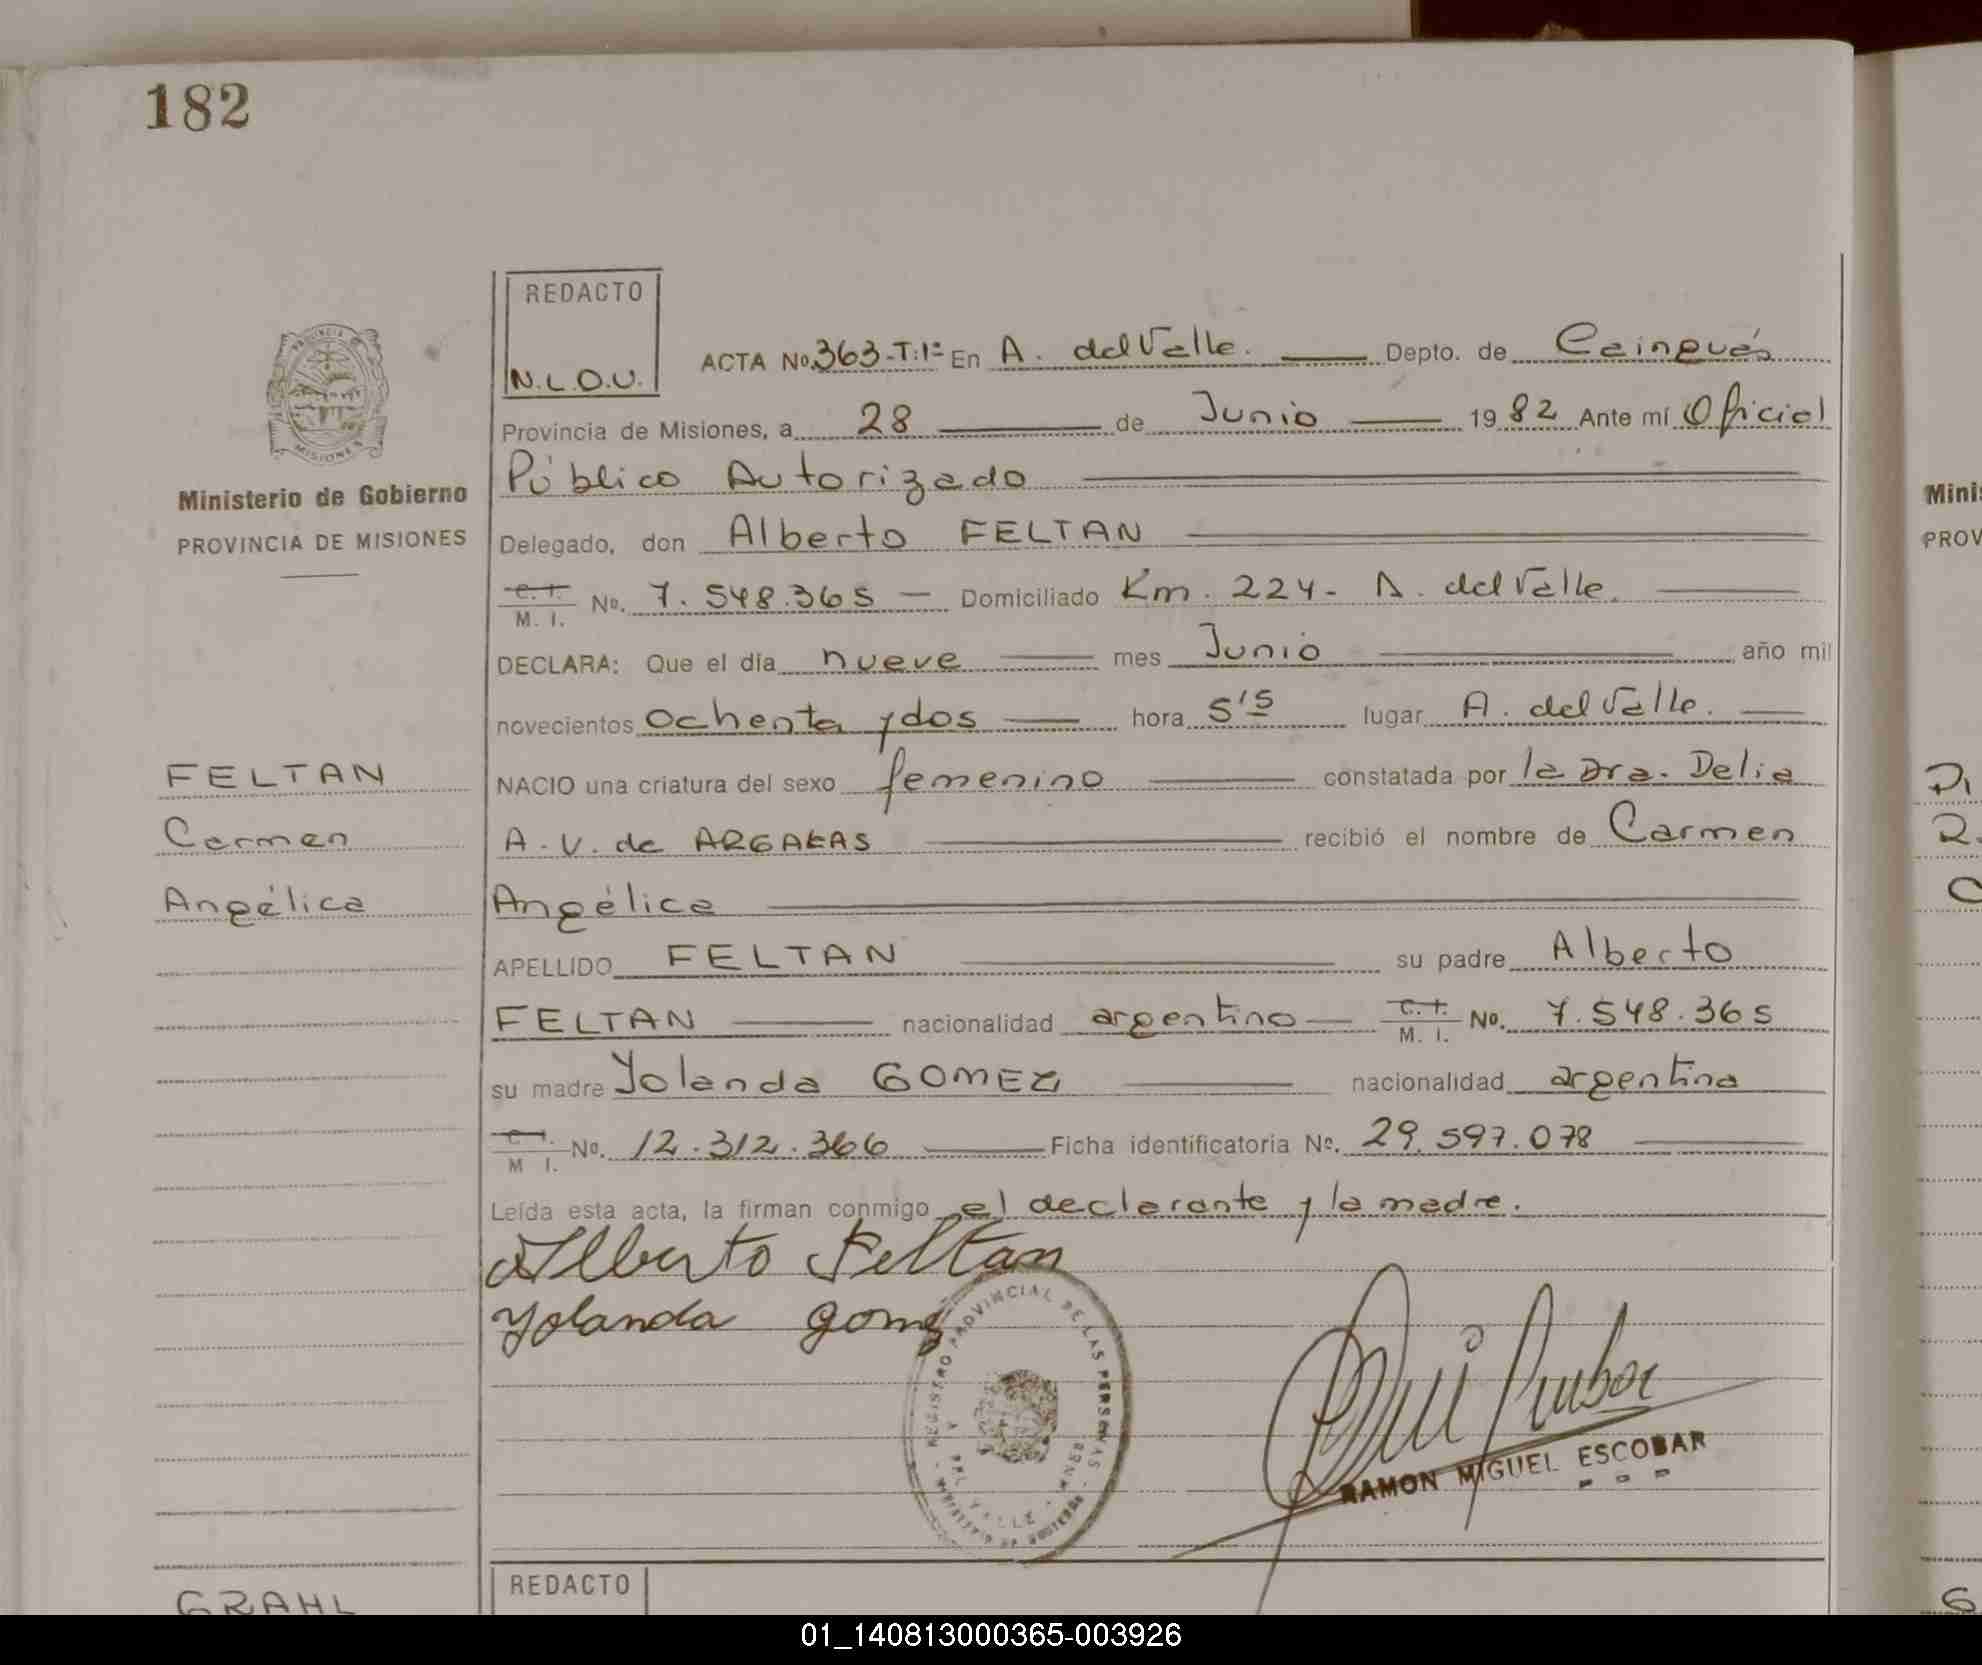 182
REDACTO
N.L.O.U.
ACTA No. 363-T:1º En A. del Valle. Depto. de Cainguás
Provincia de Misiones, a 28 de Junio 1982 Ante mí Oficial
Público Autorizado
Delegado, don Alberto FELTAN
C. I. M. I. No. 7.548.365 — Domiciliado Km. 224- A. del Valle.
DECLARA: Que el día nueve mes Junio año mil
novecientos ochenta y dos hora 5'5 lugar A. del Valle.
NACIO una criatura del sexo femenino constatada por la Dra. Delia
A. V. de recibió el nombre de Carmen
Angélica
APELLIDO FELTAN su padre Alberto
FELTAN nacionalidad argentino C. I. M. I. No. 7.548.365
su madre Yolanda GOMEZ nacionalidad argentina
C. I. M. I. No. 12.312.366 Ficha identificatoria Nº. 29.597.078
Leída esta acta, la firman conmigo el declarante y la madre.
Alberto Feltan
Yolanda Gomez
REGISTRO PROVINCIAL DE LAS PERSONAS
RAMON MIGUEL ESCOBAR
PROVINCIA DE
MISIONES
Ministerio de Gobierno
PROVINCIA DE MISIONES
FELTAN
Carmen
Angélica
GRAHL
REDACTO
Minis
PROV
01_140813000365-003926